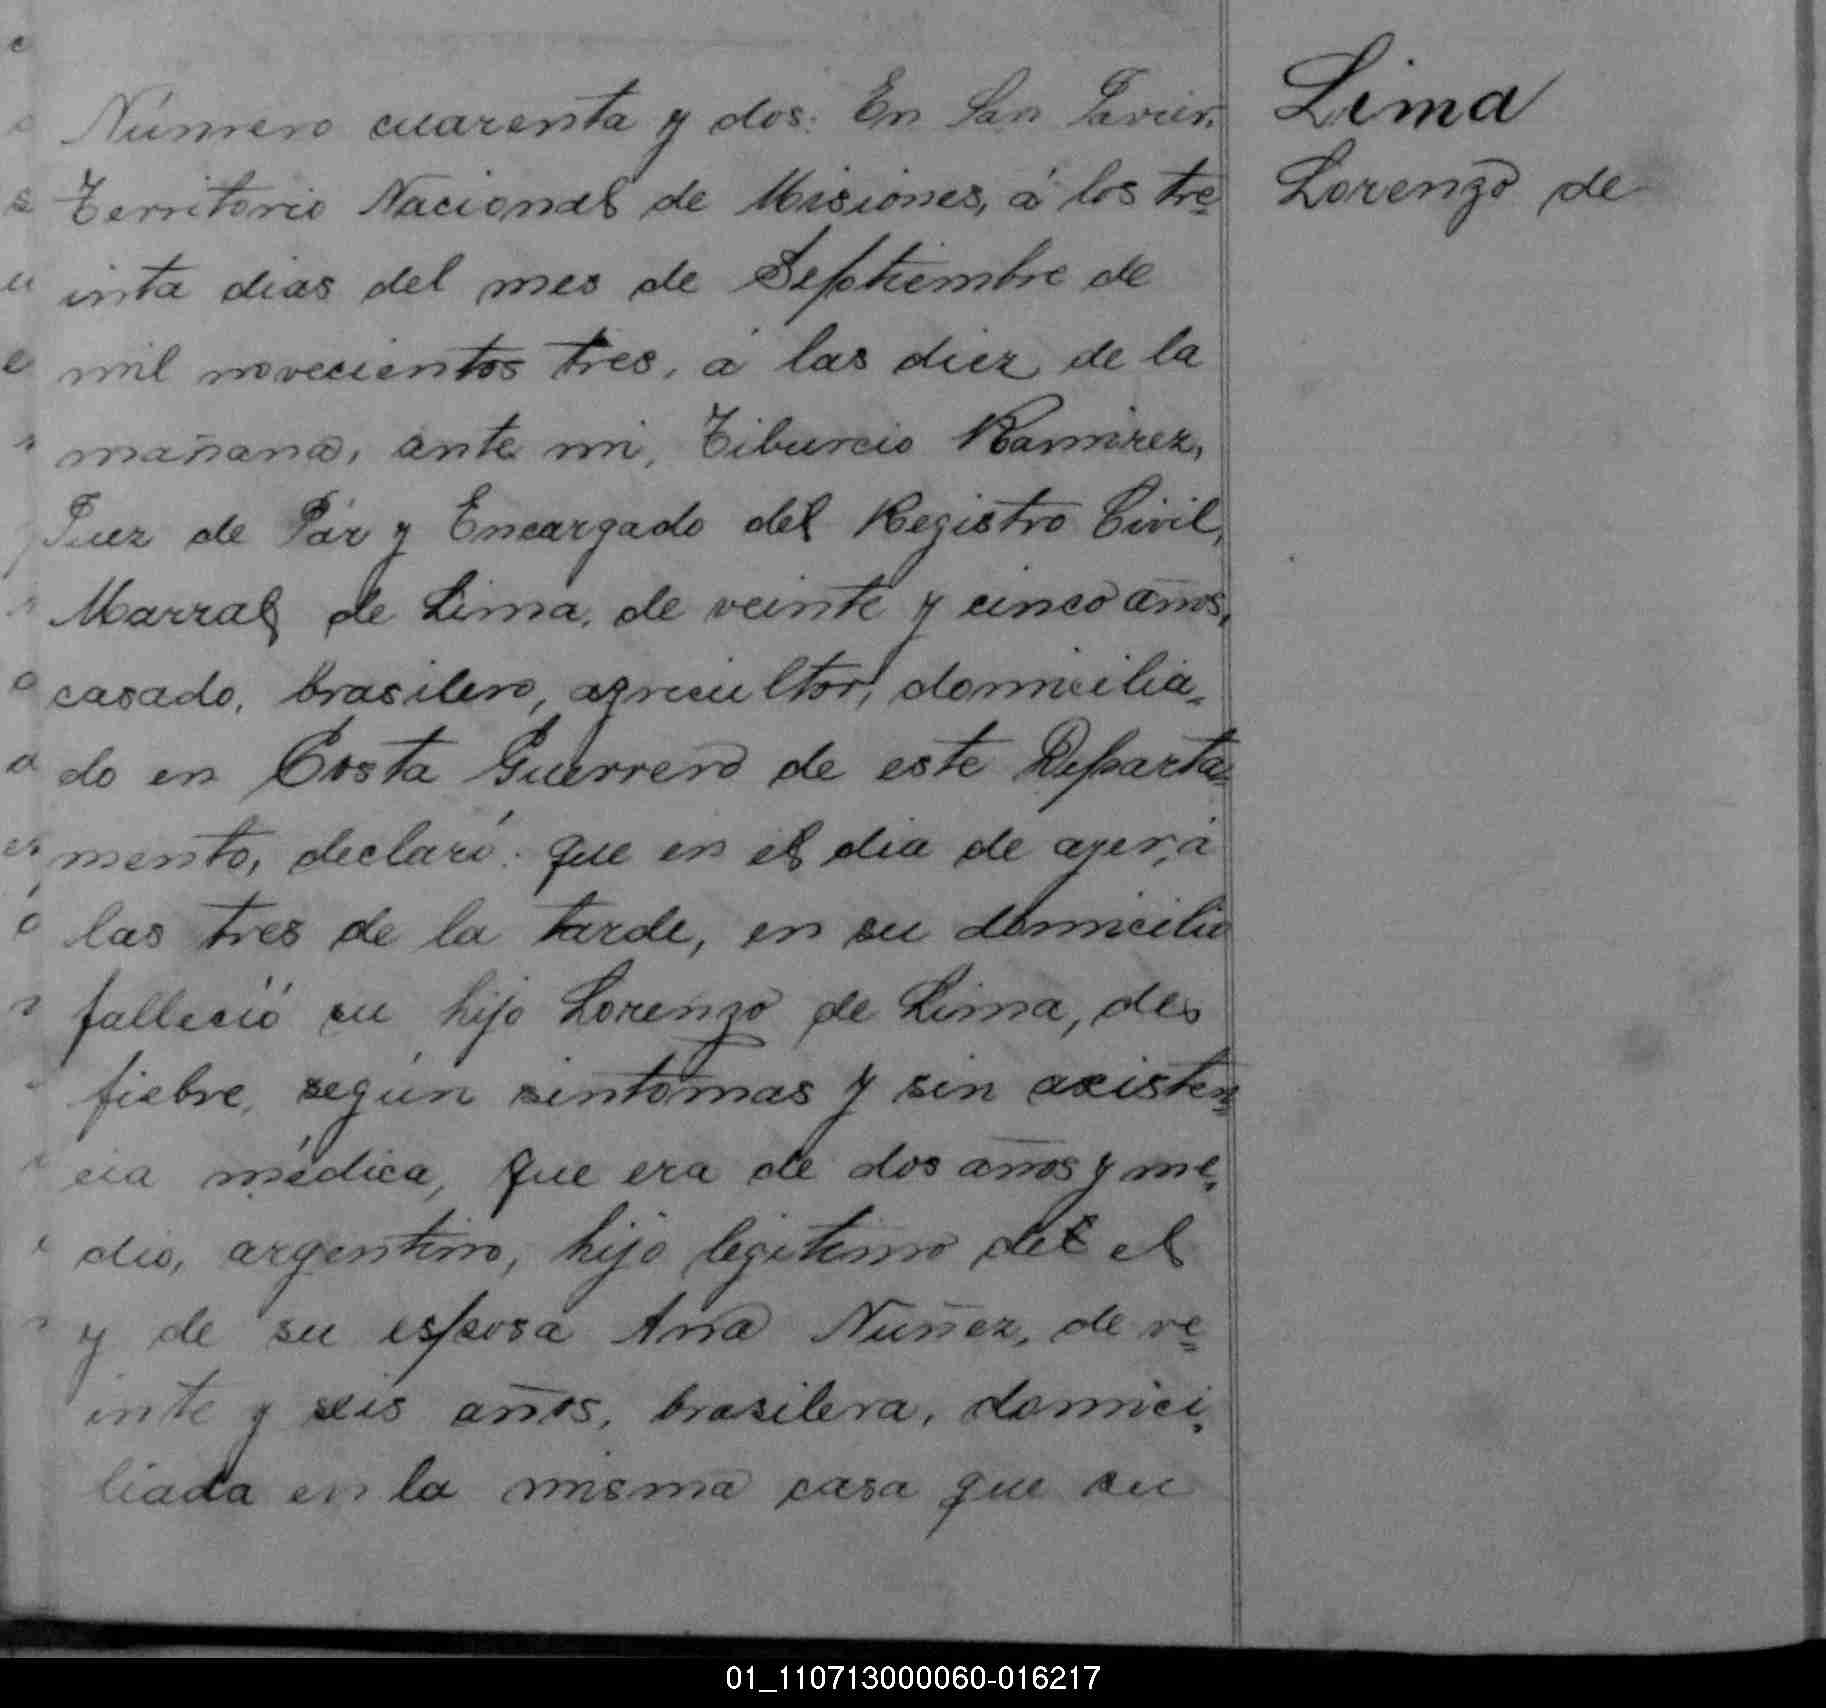 Número cuarenta y dos: En San Javier,
Territorio Nacional de Misiones, á los tre=
inta dias del mes de Septiembre de
mil novecientos tres, á las diez de la
mañana, ante mi, Tiburcio Ramirez,
Juez de Páz y Encargado del Registro Civil,
Marzal de Lima, de veinte y cinco años,
casado, brasilero, agricultor, domicilia=
do en Costa Guerrero de este Departa=
mento, declaró: que en el dia de ayer, á
las tres de la tarde, en su domicilio
falleció su hijo Lorenzo de Lima, de
fiebre, según sintomas y sin asisten=
cia médica, que era de dos años y me=
dio, argentino, hijo legitimo del el
y de su esposa Ana Nuñez, de ve=
inte y seis años, brasilera, domici=
liada en la misma casa que su
Lima
Lorenzo de
01_110713000060-016217